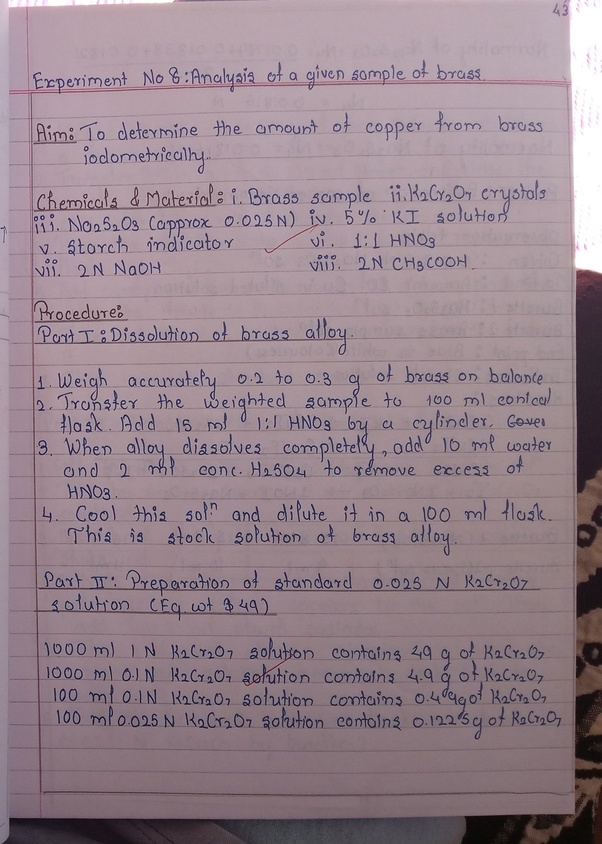 43
Experiment No 8: Analysis of a given sample of brass.
Aim: To determine the amount of copper from brass
iodometrically.
Chemicals & Material: i. Brass sample ii. K2Cr2O7 crystals
iii. Na2S2O3 (approx 0.025N) iv. 5% KI solution
v. Starch indicator vi. 1:1 HNO3
vii. 2N NaOH viii. 2N CH3COOH.
Procedure:
Part I: Dissolution of brass alloy.
1. Weigh accurately 0.2 to 0.3 g of brass on balance
2. Transfer the weighted sample to 100 ml conical
flask. Add 15 ml 1:1 HNO3 by a cylinder. Cover
3. When alloy dissolves completely, add 10 ml water
and 2 ml conc. H2SO4 to remove excess of
HNO3.
4. Cool this soln and dilute it in a 100 ml flask.
This is stock solution of brass alloy.
Part II: Preparation of standard 0.025 N K2Cr2O7
solution (Eq. wt $ 49)
1000 ml 1 N K2Cr2O7 solution contains 49 g of K2Cr2O7
1000 ml 0.1N K2Cr2O7 solution contains 4.9 g of K2Cr2O7
100 ml 0.1N K2Cr2O7 solution contains 0.49g of K2Cr2O7
100 ml 0.025 N K2Cr2O7 solution contains 0.1225g of K2Cr2O7